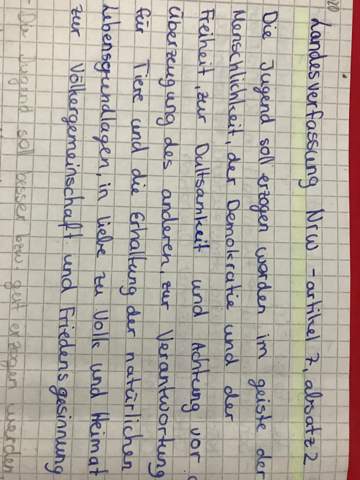 Landesverfassung Nrw - artikel 7, absatz 2
Die Jugend soll erzogen werden im geiste der
Menschlichkeit, der Demokratie und der
Freiheit, zur Dultsamkeit und Achtung vor d
überzeugung des anderen, zur Verantwortung
für Tiere und die Erhaltung der natürlichen
Lebensgrundlagen, in liebe zu Volk und Heimat
zur Völkergemeinschaft und Friedensgesinnung
- Die Jugend soll besser bzw. gut erzogen werden